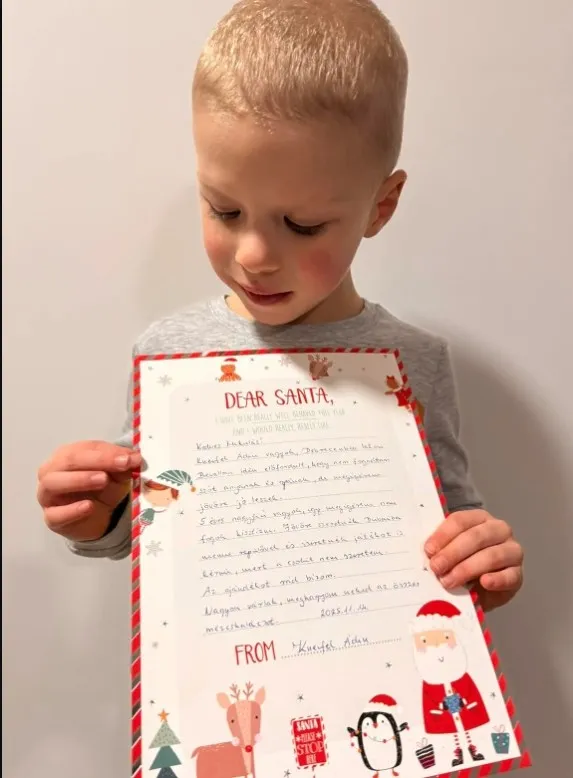 DEAR SANTA,
I HAVE BEEN REALLY WELL BEHAVED THIS YEAR
AND I WOULD REALLY, REALLY LIKE
Kedves Mikulás!
Kneifel Ádin vagyok, Debrecenből
Bevallom idén előfordult, hogy nem fogadtam
szót anyának és apának, de megígérem
jövőre jó leszek.
5 éves nagyfiú vagyok, így megígérem nem
fogok hisztizni. Jövőre szeretnék
menni repülővel és szeretnék játékot is
kérni, mert a csokit nem szeretem.
Az ajándékot rád bízom.
Nagyon várlak, meghagyom neked az összes
mézeskalácsot. 2025.11.14
FROM Kneifel Ádin
SANTA
PLEASE
STOP
HERE